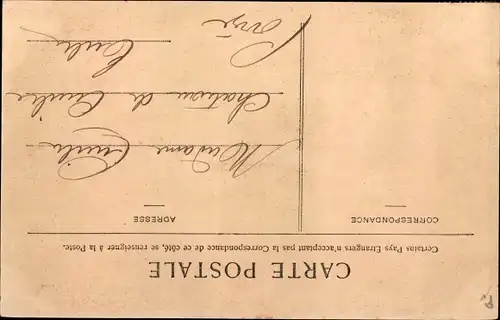 CARTE POSTALE
Certains Pays Étrangers n'acceptant pas la Correspondance de ce côté, se renseigner à la Poste.
CORRESPONDANCE
ADRESSE
Madame
Château de